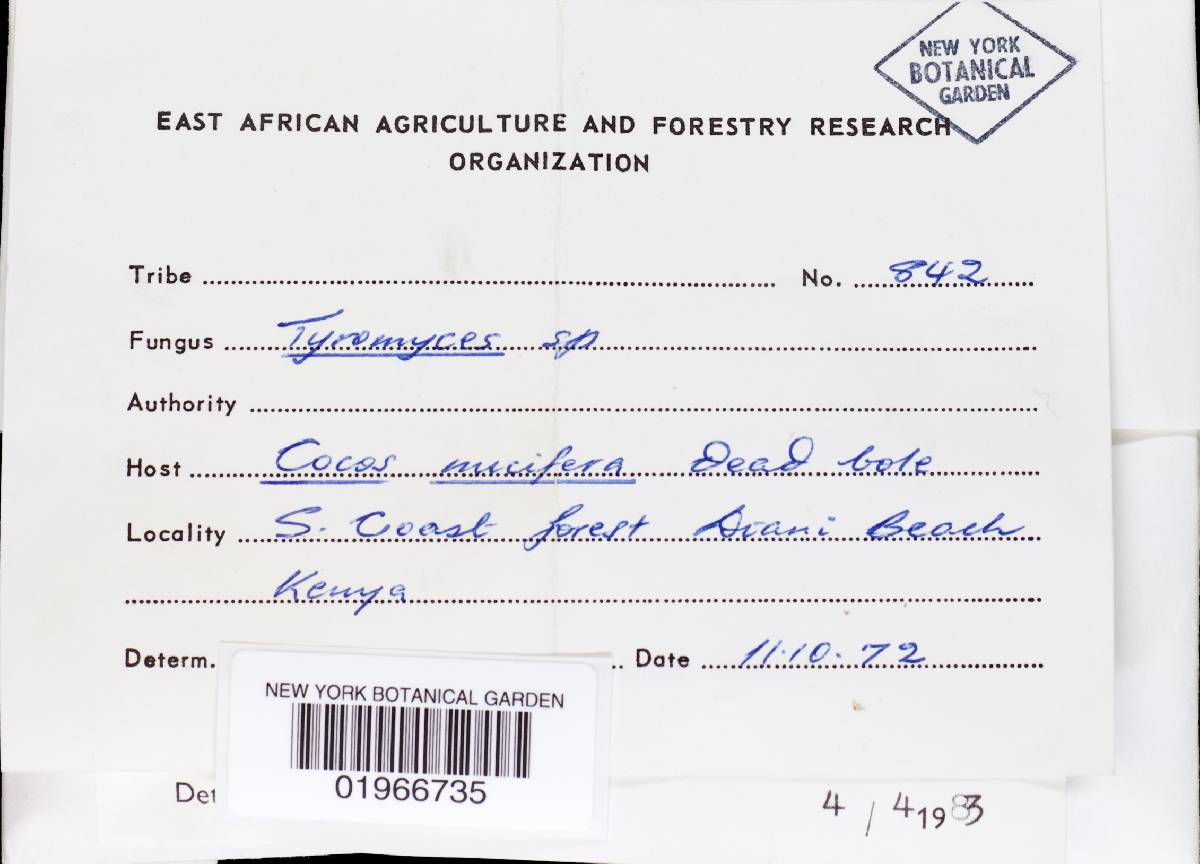 NEW YORK
BOTANICAL
GARDEN
EAST AFRICAN AGRICULTURE AND FORESTRY RESEARCH
ORGANIZATION
Tribe No. 842
Fungus Tyromyces sp
Authority
Host Cocos nucifera Dead bole
Locality S. Coast forest Diani Beach
Kenya
Determ. Date 11.10.72
NEW YORK BOTANICAL GARDEN
01966735
Det 4/4 1983